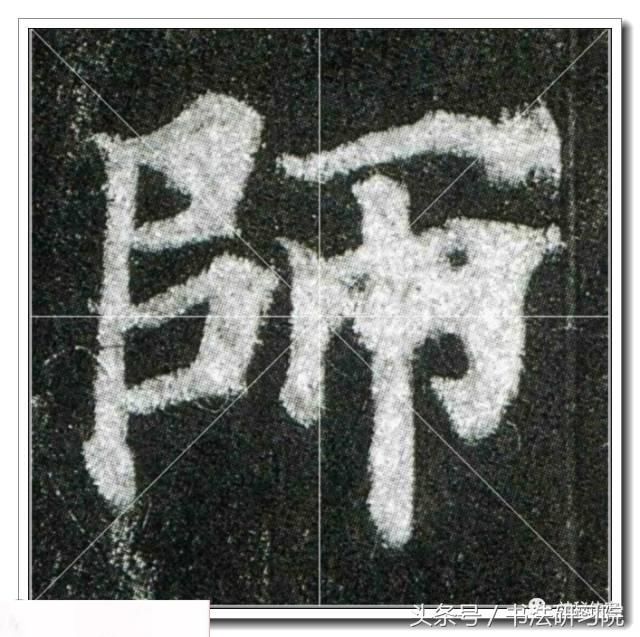 師
头条号 / 书法研习院